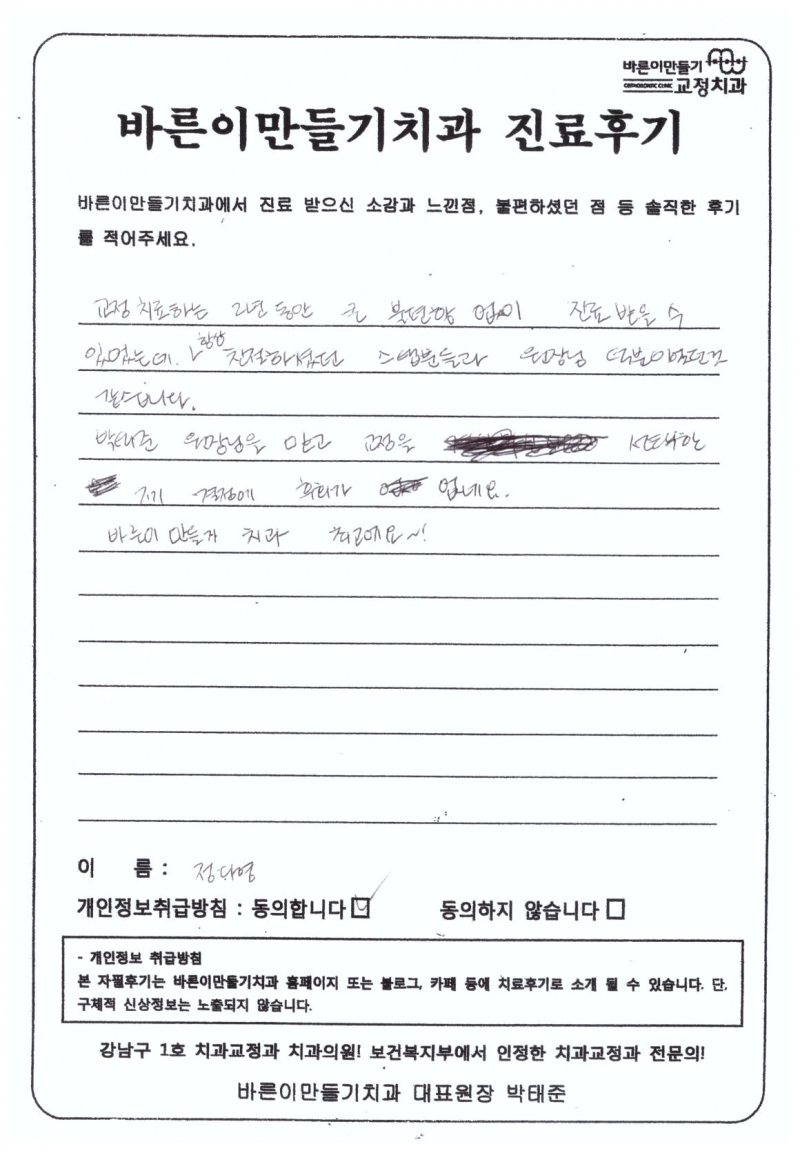 바른이만들기
ORTHODONTIC CLINIC 교정치과
바른이만들기치과 진료후기
바른이만들기치과에서 진료 받으신 소감과 느낀점, 불편하셨던 점 등 솔직한 후기
를 적어주세요.
교정 치료하는 2년 동안 큰 불편함 없이 진료 받을 수
있었는데. 항상 친절하셨던 스텝분들과 원장님 덕분이었던것
같습니다.
박태준 원장님을 믿고 교정을 선택한
제 결정에 후회가 없네요.
바른이 만들기 치과 최고예요~!
이 름 : 정다영
개인정보취급방침 : 동의합니다 ☑ 동의하지 않습니다 □
- 개인정보 취급방침
본 자필후기는 바른이만들기치과 홈페이지 또는 블로그, 카페 등에 치료후기로 소개 될 수 있습니다. 단,
구체적 신상정보는 노출되지 않습니다.
강남구 1호 치과교정과 치과의원! 보건복지부에서 인정한 치과교정과 전문의!
바른이만들기치과 대표원장 박태준